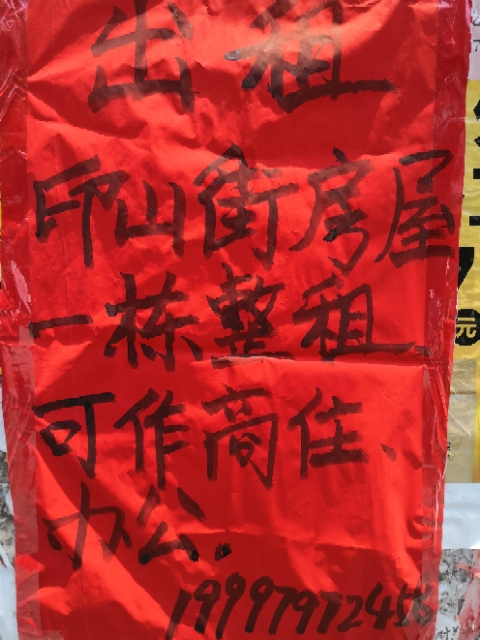 出租
印山街房屋
一栋整租
可作商住、
办公.
元